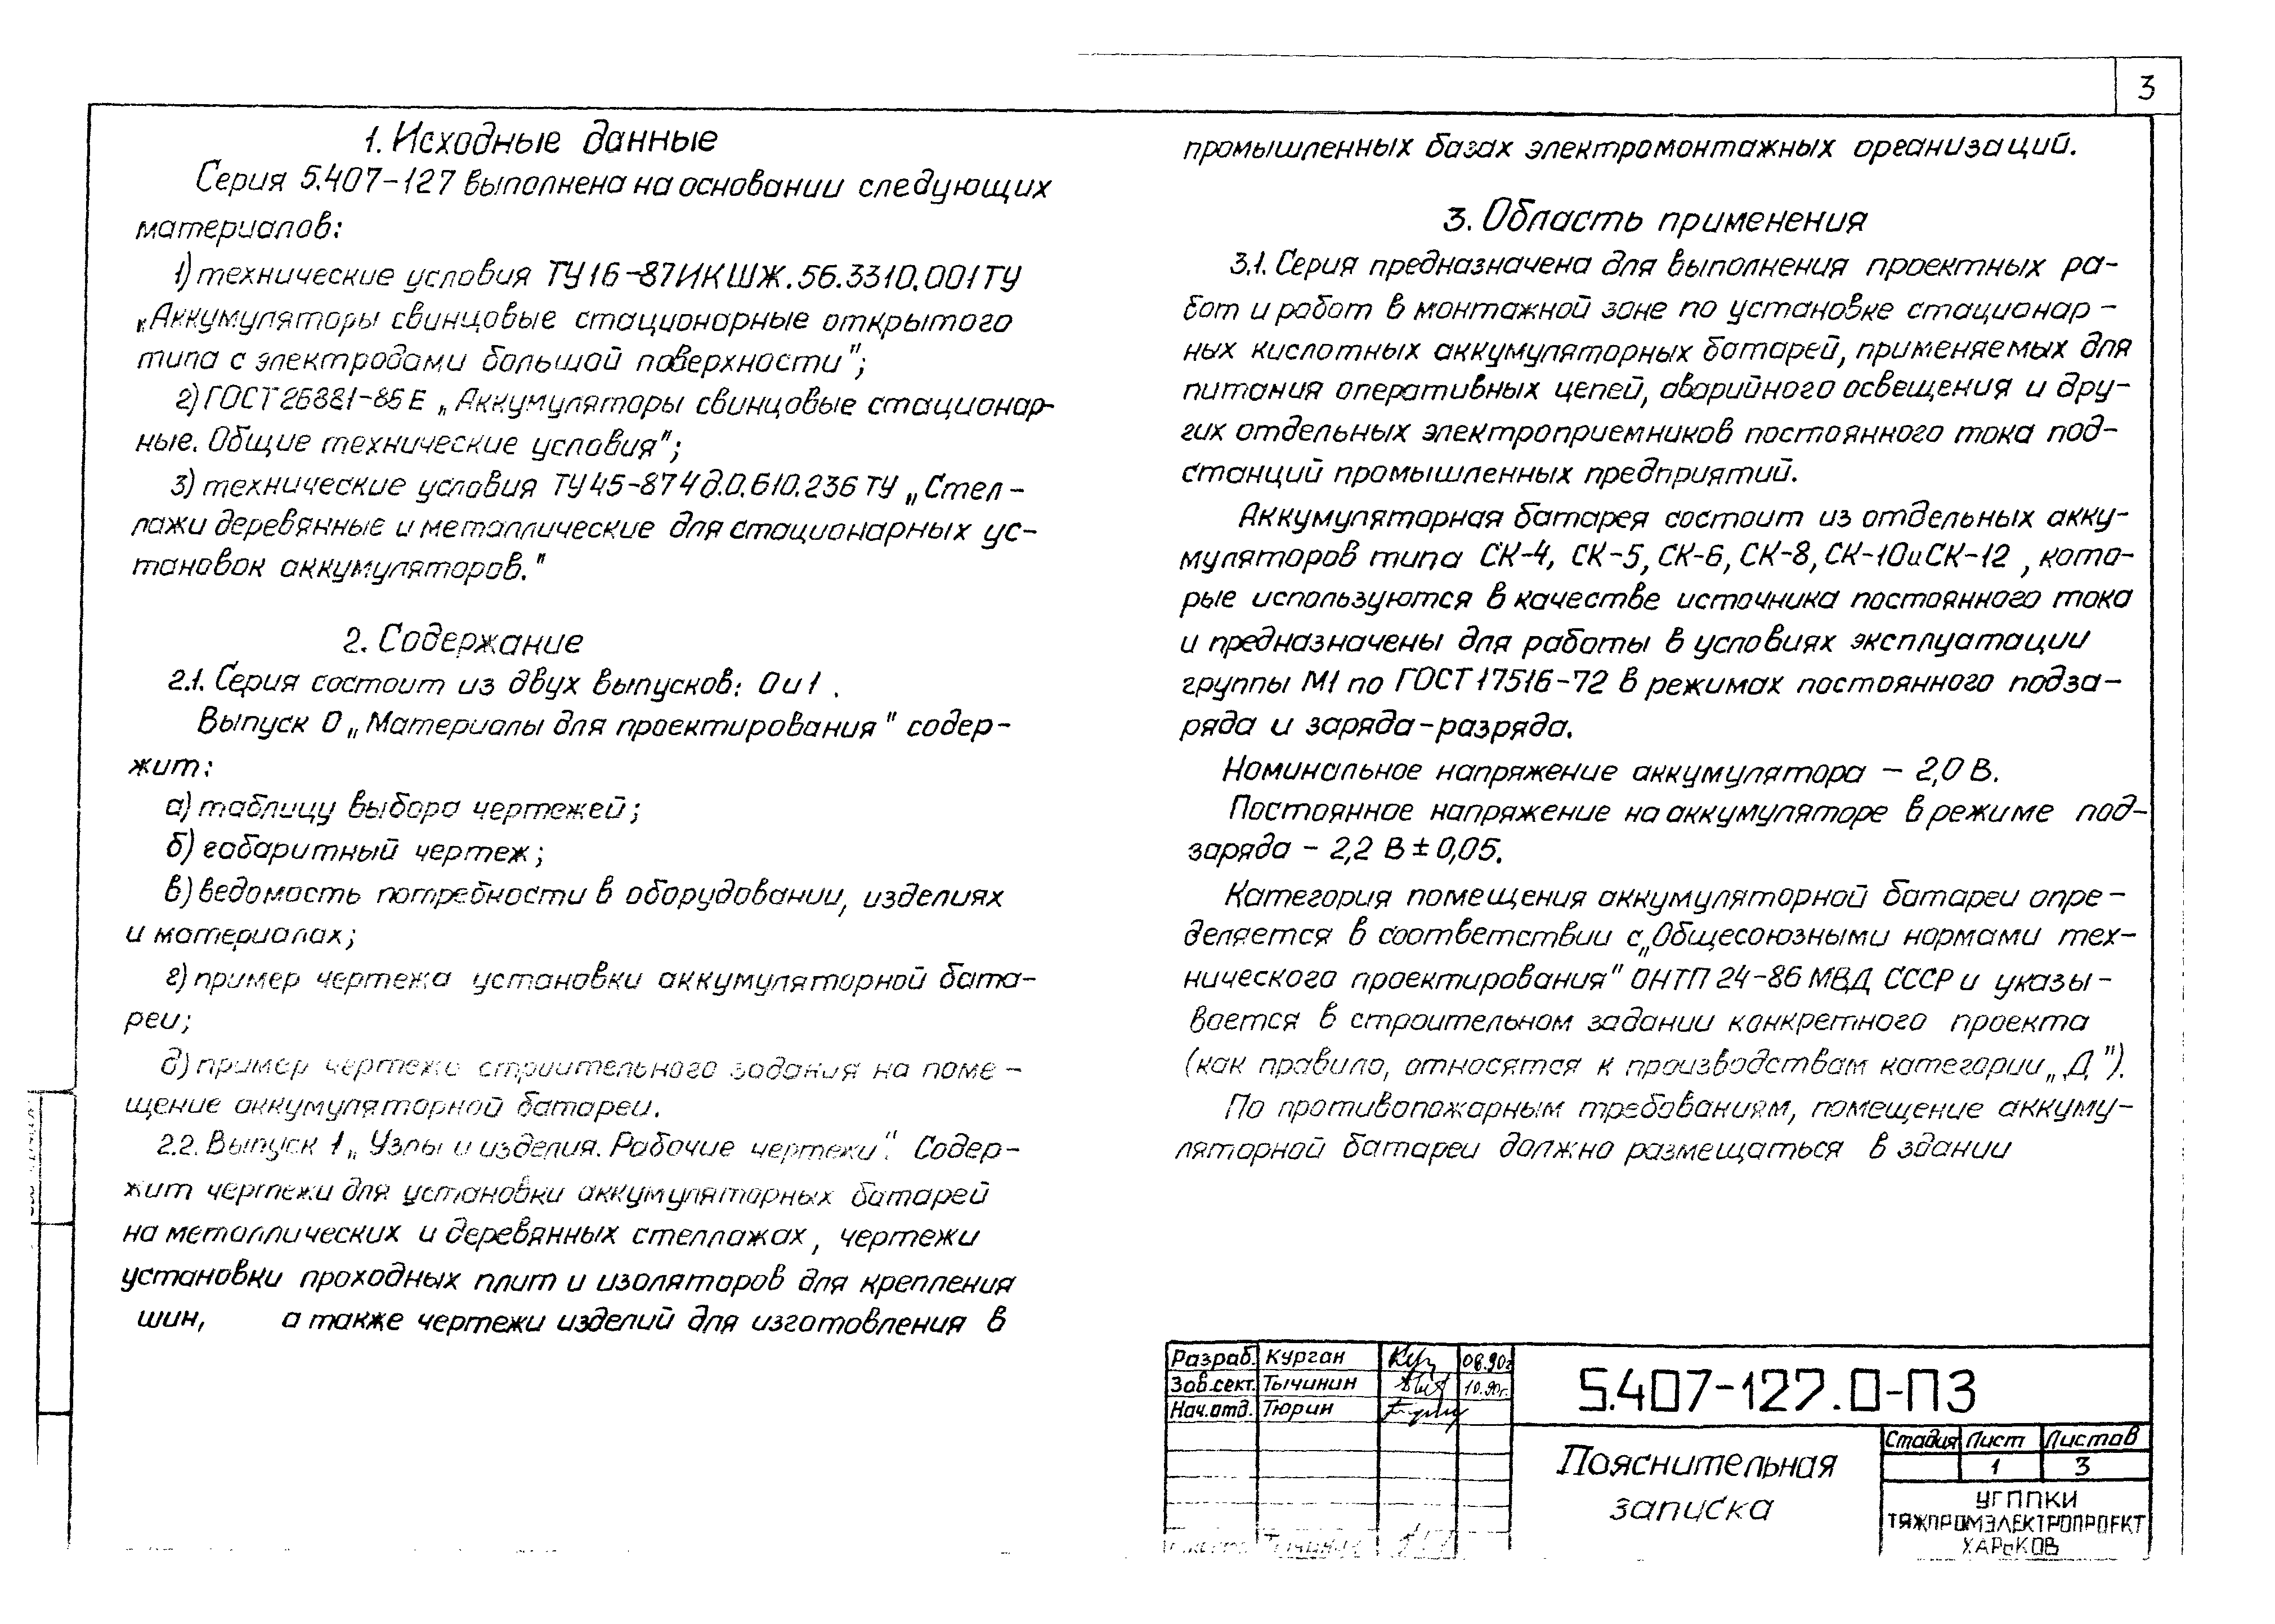 3
1. Исходные данные
Серия 5.407-127 выполнена на основании следующих
материалов:
1) технические условия ТУ16-87ИКШЖ.563310.001ТУ
„Аккумуляторы свинцовые стационарные открытого
типа с электродами большой поверхности";
2) ГОСТ 26881-86Е „Аккумуляторы свинцовые стационар-
ные. Общие технические условия";
3) технические условия ТУ45-87 4д.0.610.236 ТУ „Стел-
лажи деревянные и металлические для стационарных ус-
тановок аккумуляторов."
2. Содержание
2.1. Серия состоит из двух выпусков: 0 и 1 .
Выпуск 0 „Материалы для проектирования" содер-
жит:
а) таблицу выбора чертежей;
б) габаритный чертеж;
в) ведомость потребности в оборудовании, изделиях
и материалах;
г) пример чертежа установки аккумуляторной бата-
реи;
д) пример чертежа строительного задания на поме-
щение аккумуляторной батареи.
2.2. Выпуск 1 „Узлы и изделия. Рабочие чертежи". Содер-
жит чертежи для установки аккумуляторных батарей
на металлических и деревянных стеллажах, чертежи
установки проходных плит и изоляторов для крепления
шин, а также чертежи изделий для изготовления в
промышленных базах электромонтажных организаций.
3. Область применения
3.1. Серия предназначена для выполнения проектных ра-
бот и работ в монтажной зоне по установке стационар-
ных кислотных аккумуляторных батарей, применяемых для
питания оперативных цепей, аварийного освещения и дру-
гих отдельных электроприемников постоянного тока под-
станций промышленных предприятий.
Аккумуляторная батарея состоит из отдельных акку-
муляторов типа СК-4, СК-5, СК-6, СК-8, СК-10 и СК-12 , кото-
рые используются в качестве источника постоянного тока
и предназначены для работы в условиях эксплуатации
группы М1 по ГОСТ 17516-72 в режимах постоянного подза-
ряда и заряда-разряда.
Номинальное напряжение аккумулятора - 2,0 В.
Постоянное напряжение на аккумуляторе в режиме под-
заряда - 2,2 В ± 0,05.
Категория помещения аккумуляторной батареи опре-
деляется в соответствии с „Общесоюзными нормами тех-
нического проектирования" ОНТП 24-86 МВД СССР и указы-
вается в строительном задании конкретного проекта
(как правило, относятся к производствам категории „Д").
По противопожарным требованиям, помещение аккуму-
ляторной батареи должно размещаться в здании
Разраб. Курган 08.90г
Зав.сект. Тычинин 10.90г.
Нач.отд. Тюрин
5.407-127.0-ПЗ
Пояснительная
записка
Стадия Лист Листов
1 3
УГППКИ
ТЯЖПРОМЭЛЕКТРОПРОЕКТ
ХАРЬКОВ